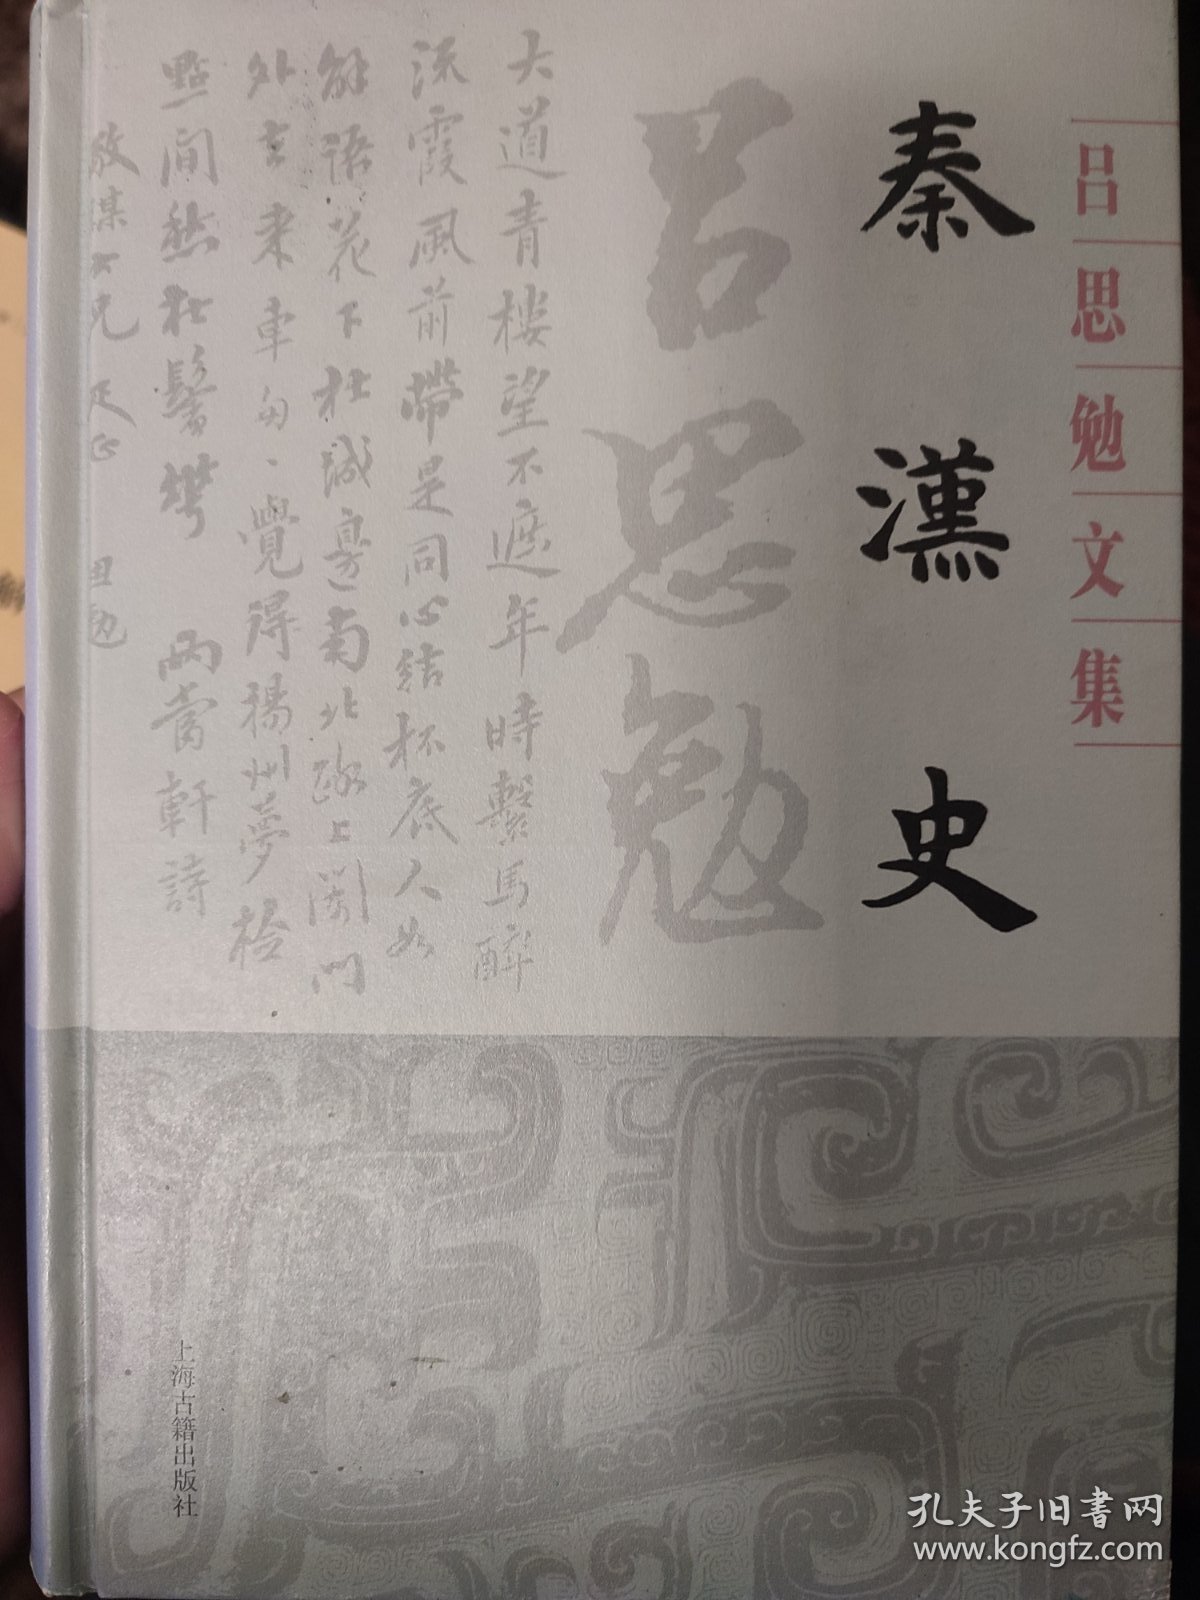 吕思勉文集
秦漢史
吕思勉
大道青樓望不遮年時繫馬醉
流霞風前帶是同心結杯底人如
解語花下杜城邊南北路上闌門
外去來車匆匆覺得揚州夢檢
點閒愁在鬢華 兩當軒詩
上海古籍出版社
孔夫子旧书网
www.kongfz.com